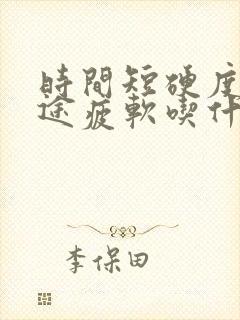 時間短硬度
途疲軟喫什
李保田